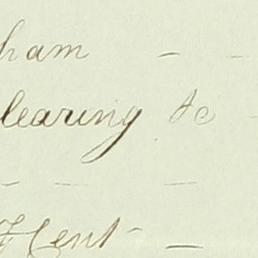 ham - -
learing &c -
- - -
Cent -